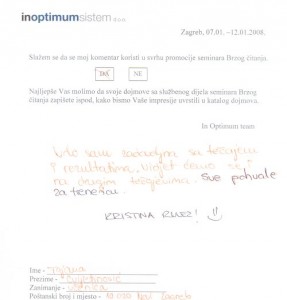 inoptimumsistem d.o.o.
Zagreb, 07.01. -12.01.2008.
Slažem se da se moj komentar koristi u svrhu promocije seminara Brzog čitanja.
DA NE
Najljepše Vas molimo da svoje dojmove sa službenog dijela seminara Brzog
čitanja zapišete ispod, kako bismo Vaše impresije uvrstili u katalog dojmova.
In Optimum team
Vrlo sam zadovoljna sa tečajem
i rezultatima, vidjet ćemo se
na drugim tečajevima. Sve pohvale
za trenericu.
KRISTINA
Ime -
Prezime -
Zanimanje -
Poštanski broj i mjesto - Zagreb